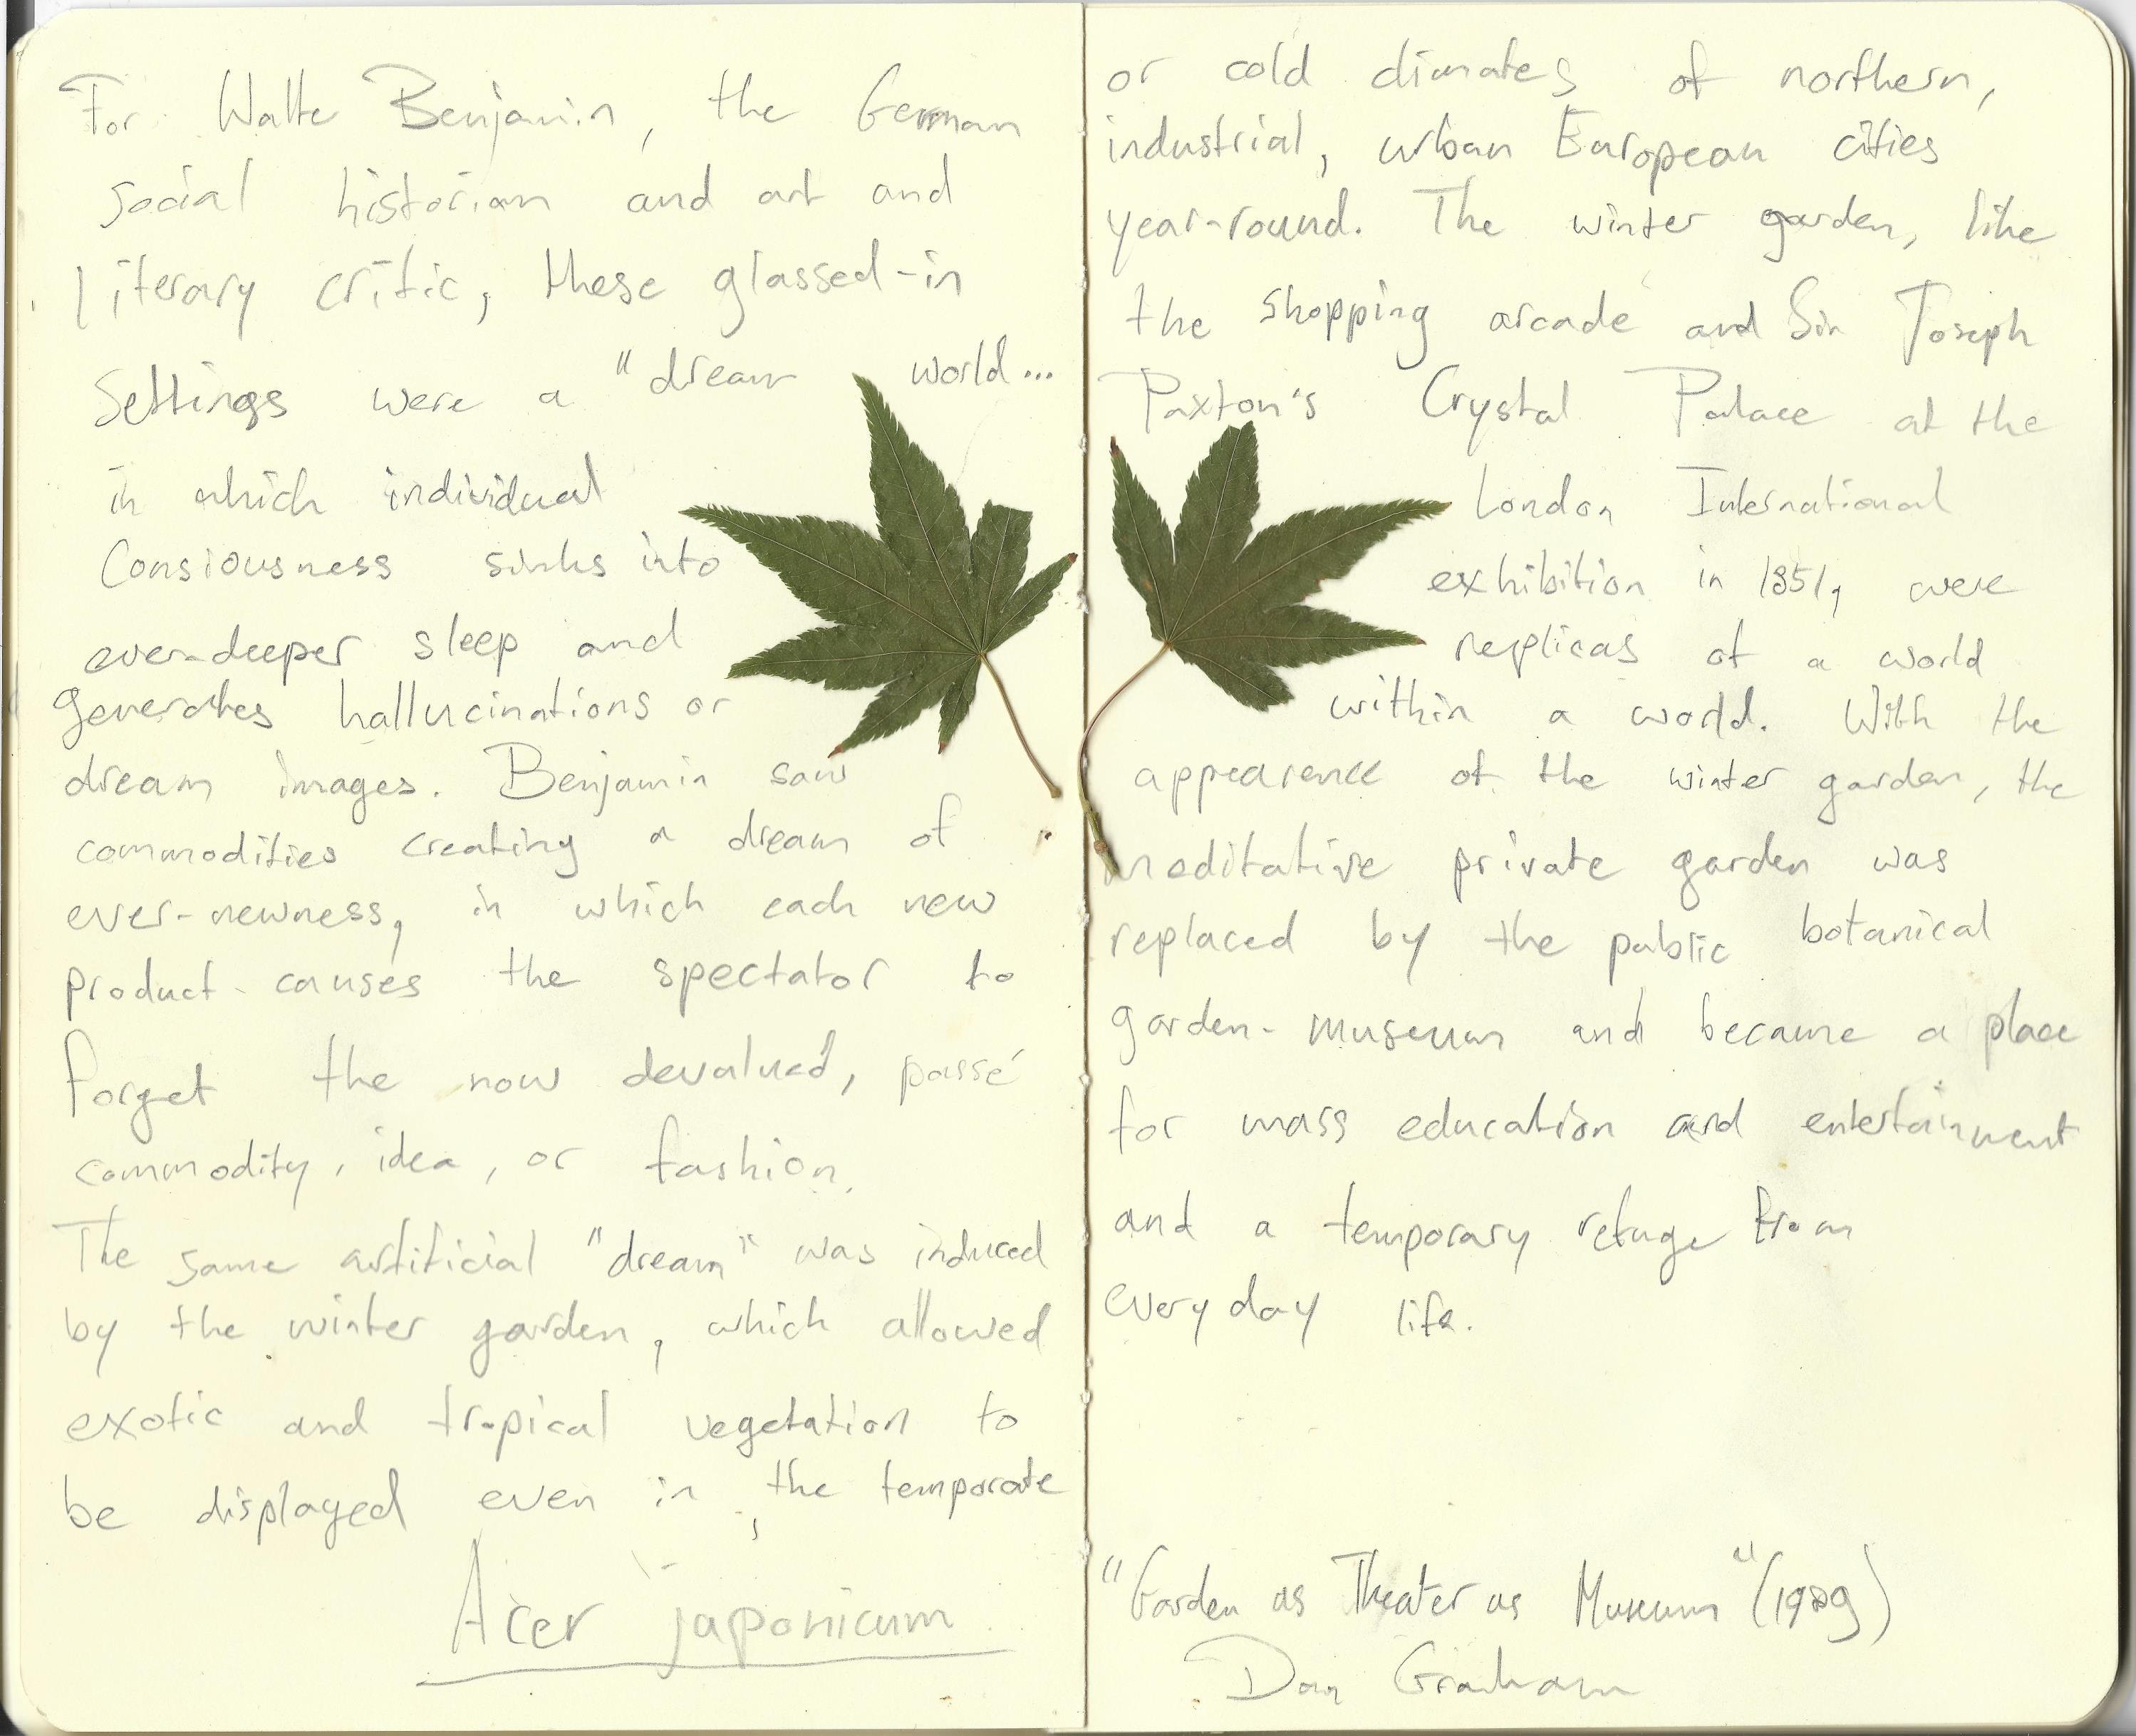 For Walte Benjamin, the German
social historian and art and
literary critic, these glassed-in
settings were a "dream world...
in which individual
Consiousness sinks into
ever-deeper sleep and
generates hallucinations or
dream images. Benjamin saw
commodities creating a dream of
ever-newness, in which each new
product causes the spectator to
forget the now devalued, passé
commodity, idea, or fashion.
The same artificial "dream" was induced
by the winter garden, which allowed
exotic and tropical vegetation to
be displayed even in the temporate
Acer japonicum
or cold climates of northern,
industrial, urban European cities
year-round. The winter garden, like
the shopping arcade and Sir Joseph
Paxton's Crystal Palace at the
London International
exhibition in 1851, were
replicas of a world
within a world. With the
appearence of the winter garden, the
meditative private garden was
replaced by the public botanical
garden-museum and became a place
for mass education and entertainment
and a temporary refuge from
everyday life.
"Garden as Theater as Museum" (1989)
Dan Graham